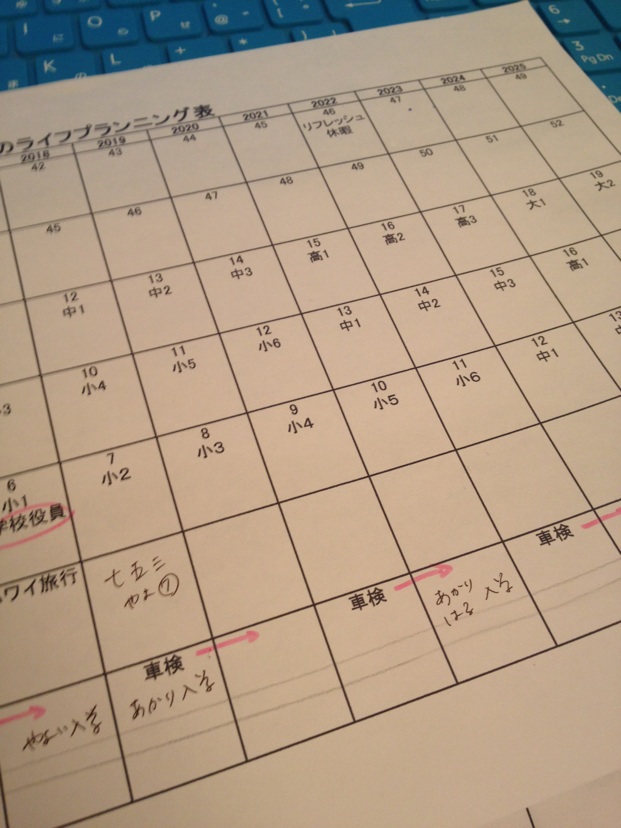 のライフプランニング表
2018 2019 2020 2021 2022 2023 2024 2025
42 43 44 45 46 47 48 49
リフレッシュ
休暇
45 46 47 48 49 50 51 52
12 13 14 15 16 17 18 19
中1 中2 中3 高1 高2 高3 大1 大2
10 11 12 13 14 15 16
3 小4 小5 小6 中1 中2 中3 高1
6 7 8 9 10 11 12 13
小1 小2 小3 小4 小5 小6 中1
学校役員
ワイ旅行
七五三
やよ⑦
車検 車検 車検
やよい入学
あかり入学
あかり
はる 入学
O P @ [
K L + *
6
3
Pg Dn